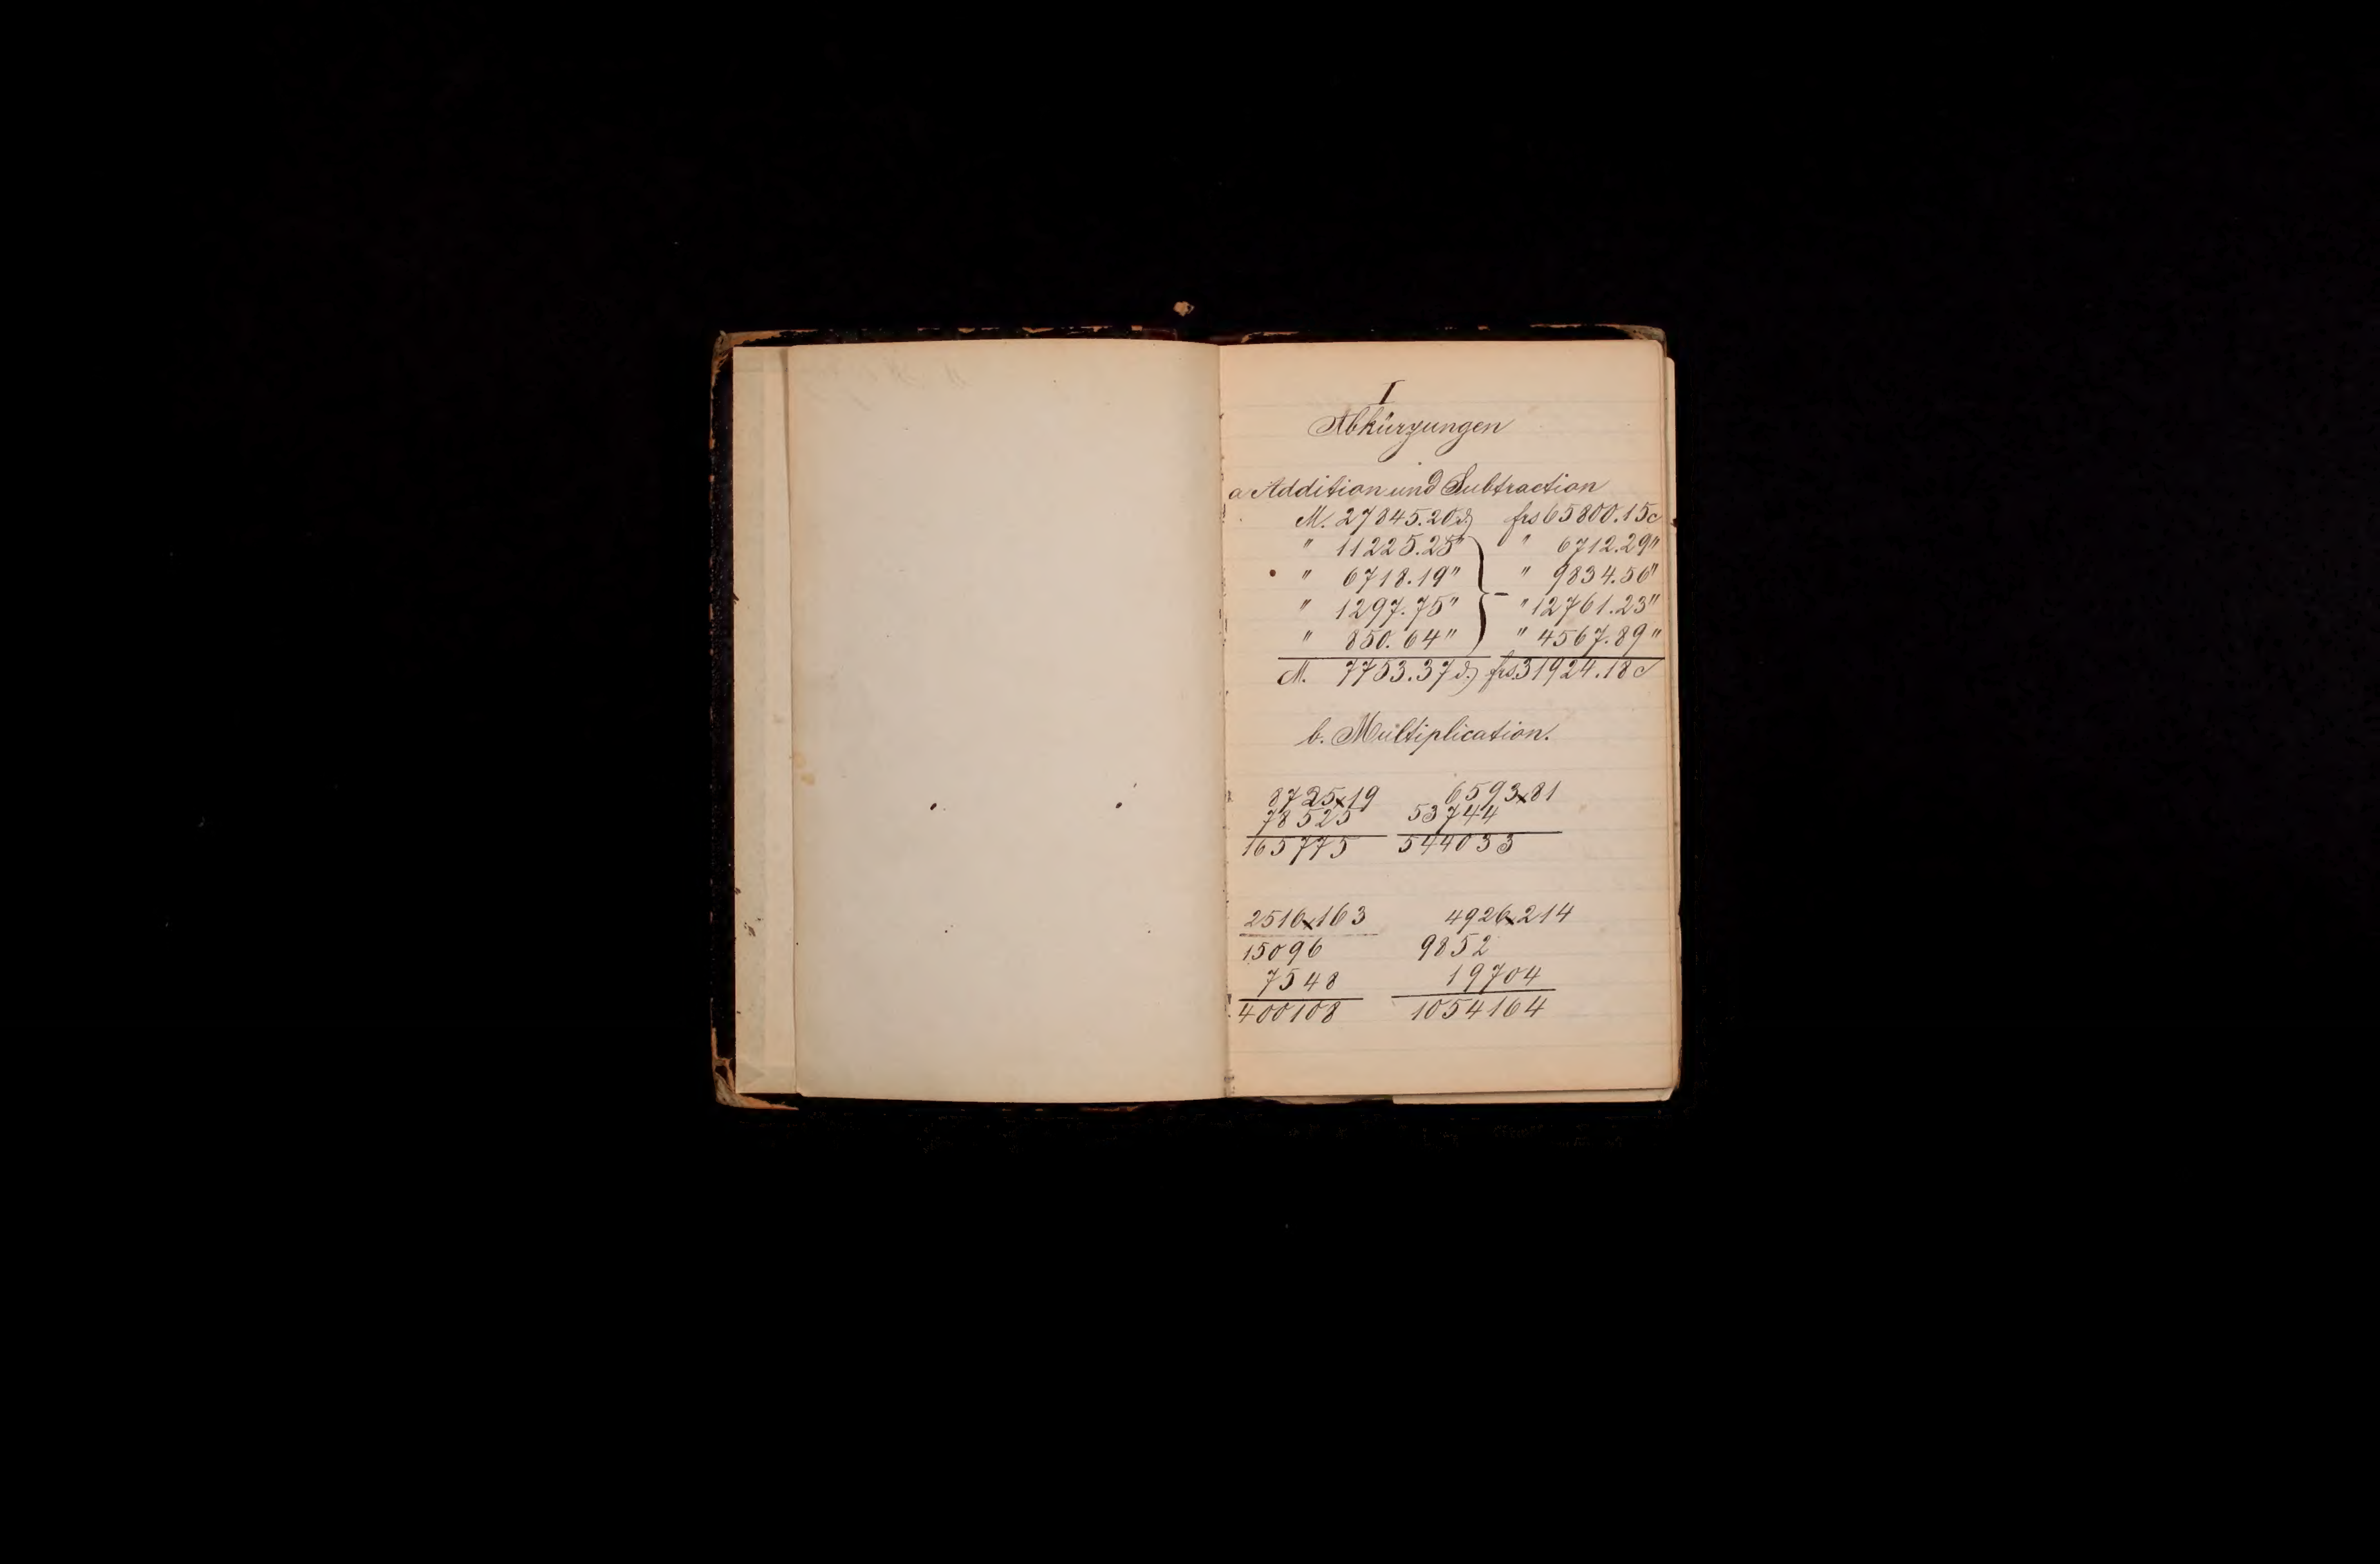 I
Abkürzungen
a Addition und Subtraction
M. 27845.20 ₰ frs 65800.15 c
" 11225.25 " " 6712.29 "
" 6718.19 " " 9834.56 "
" 1297.75 " } - " 12761.23 "
" 850.64 " " 4567.89 "
M. 7753.37 ₰ frs. 31924.18 c
b. Multiplication.
8725x19 6593x81
78525 53744
165775 544033
2516x163 4926x214
15096 9852
7548 19704
400108 1054164